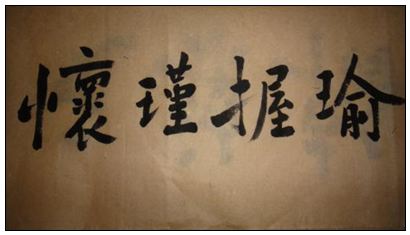 懷瑾握瑜